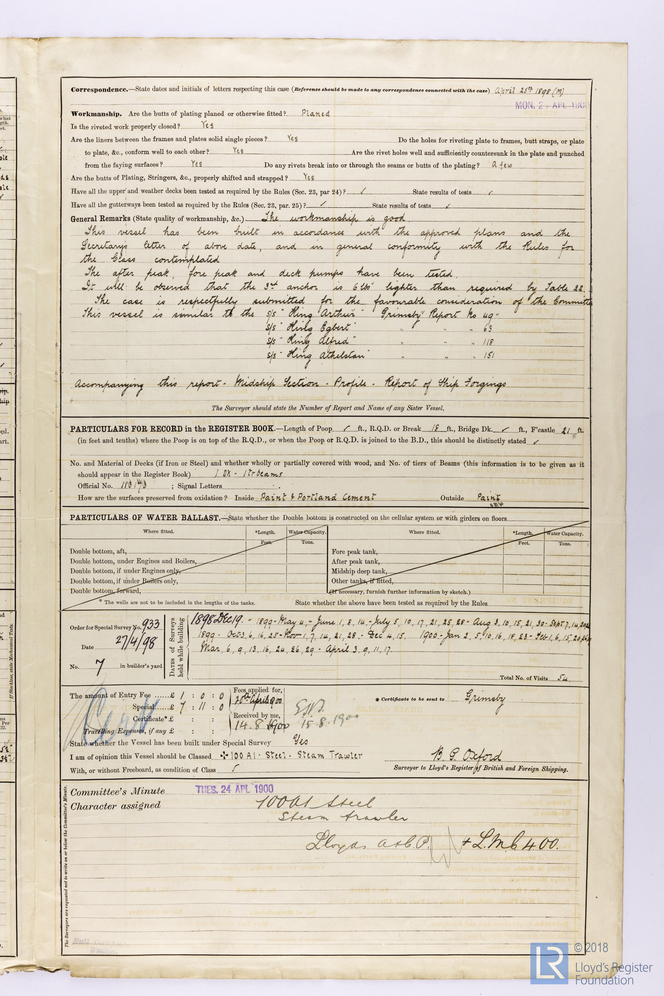 Correspondence.—State dates and initials of letters respecting this case (Reference should be made to any correspondence connected with the case) April 28th 1898 (M)
MON. 2 APL 190
Workmanship. Are the butts of plating planed or otherwise fitted? Planed
Is the riveted work properly closed? Yes
Are the liners between the frames and plates solid single pieces? Yes Do the holes for riveting plate to frames, butt straps, or plate
to plate, &c., conform well to each other? Yes Are the rivet holes well and sufficiently countersunk in the plate and punched
from the faying surfaces? Yes Do any rivets break into or through the seams or butts of the plating? A few
Are the butts of Plating, Stringers, &c., properly shifted and strapped? Yes
Have all the upper and weather decks been tested as required by the Rules (Sec. 23, par 24)? ✓ State results of tests ✓
Have all the gutterways been tested as required by the Rules (Sec. 23, par. 25)? ✓ State results of tests ✓
General Remarks (State quality of workmanship, &c.) The workmanship is good.
This vessel has been built in accordance with the approved plans and the
Secretarys letter of above date, and in general conformity with the Rules for
the Class contemplated
The after peak, fore peak and deck pumps have been tested.
It will be observed that the 3rd anchor is 6 lbs lighter than required by Table 22.
The case is respectfully submitted for the favourable consideration of the Committee
This vessel is similar to the s/s "King Arthur" Grimsby Report No 49-
s/s "King Egbert" " " " 63
s/s "King Alfred" " " " 118
s/s "King Athelstan" " " " 151
Accompanying this report - Midship Section - Profile - Report of Ship Forgings
The Surveyor should state the Number of Report and Name of any Sister Vessel.
PARTICULARS FOR RECORD in the REGISTER BOOK.—Length of Poop ✓ ft., R.Q.D. or Break 18 ft., Bridge Dk. ✓ ft., F'castle 21 ft.
(in feet and tenths) where the Poop is on top of the R.Q.D., or when the Poop or R.Q.D. is joined to the B.D., this should be distinctly stated ✓
No. and Material of Decks (if Iron or Steel) and whether wholly or partially covered with wood, and No. of tiers of Beams (this information is to be given as it
should appear in the Register Book) 1 Dk - 1 tr beams
Official No. ; Signal Letters
How are the surfaces preserved from oxidation? Inside Paint & Portland Cement Outside Paint
PARTICULARS OF WATER BALLAST.—State whether the Double bottom is constructed on the cellular system or with girders on floors
Where fitted. *Length. Water Capacity. Where fitted. *Length. Water Capacity.
Feet. Tons. Feet. Tons.
Double bottom, aft, Fore peak tank,
Double bottom, under Engines and Boilers, After peak tank,
Double bottom, if under Engines only, Midship deep tank,
Double bottom, if under Boilers only, Other tanks, if fitted,
Double bottom, forward, (If necessary, furnish further information by sketch.)
* The wells are not to be included in the lengths of the tanks. State whether the above have been tested as required by the Rules
Order for Special Survey No. 933
Date 27/4/98
No. 7 in builder's yard
DATES of Surveys held while building
1898 Dec 19 - 1899 - May 4 - June 1, 8, 14 - July 5, 10, 17, 21, 25, 28 - Aug 3, 10, 15, 21, 30 - Sept 7, 14,
1899 - Oct 3, 6, 16, 25 - Nov 1, 7, 14, 21, 28 - Dec 4, 15. 1900 - Jan 2, 5, 10, 16, 18, 23 - Feb 1, 6, 15, 20,
Mar. 6, 9, 13, 16, 20, 26, 29 - April 3, 9, 11, 17.
Total No. of Visits 54
The amount of Entry Fee £ 1 : 0 : 0 Fees applied for,
Special £ 7 : 11 : 0 April 1900
Certificate* £ : : Received by me,
Travelling Expenses, if any £ : : 14.8.1900 15.8.1900
* Certificate to be sent to Grimsby
State whether the Vessel has been built under Special Survey Yes
I am of opinion this Vessel should be Classed ✠ 100 A1 - Steel - Steam Trawler
With, or without Freeboard, as condition of Class ✓
B. G. Oxford
Surveyor to Lloyd's Register of British and Foreign Shipping.
Committee's Minute TUES. 24 APL 1900
Character assigned 100 A1 Steel
Steam trawler
Lloyds A & C P. + L.M.C 4.00.
The Surveyors are requested not to write on or below the Committee's Minute.
© 2018
Lloyd's Register
Foundation
LR